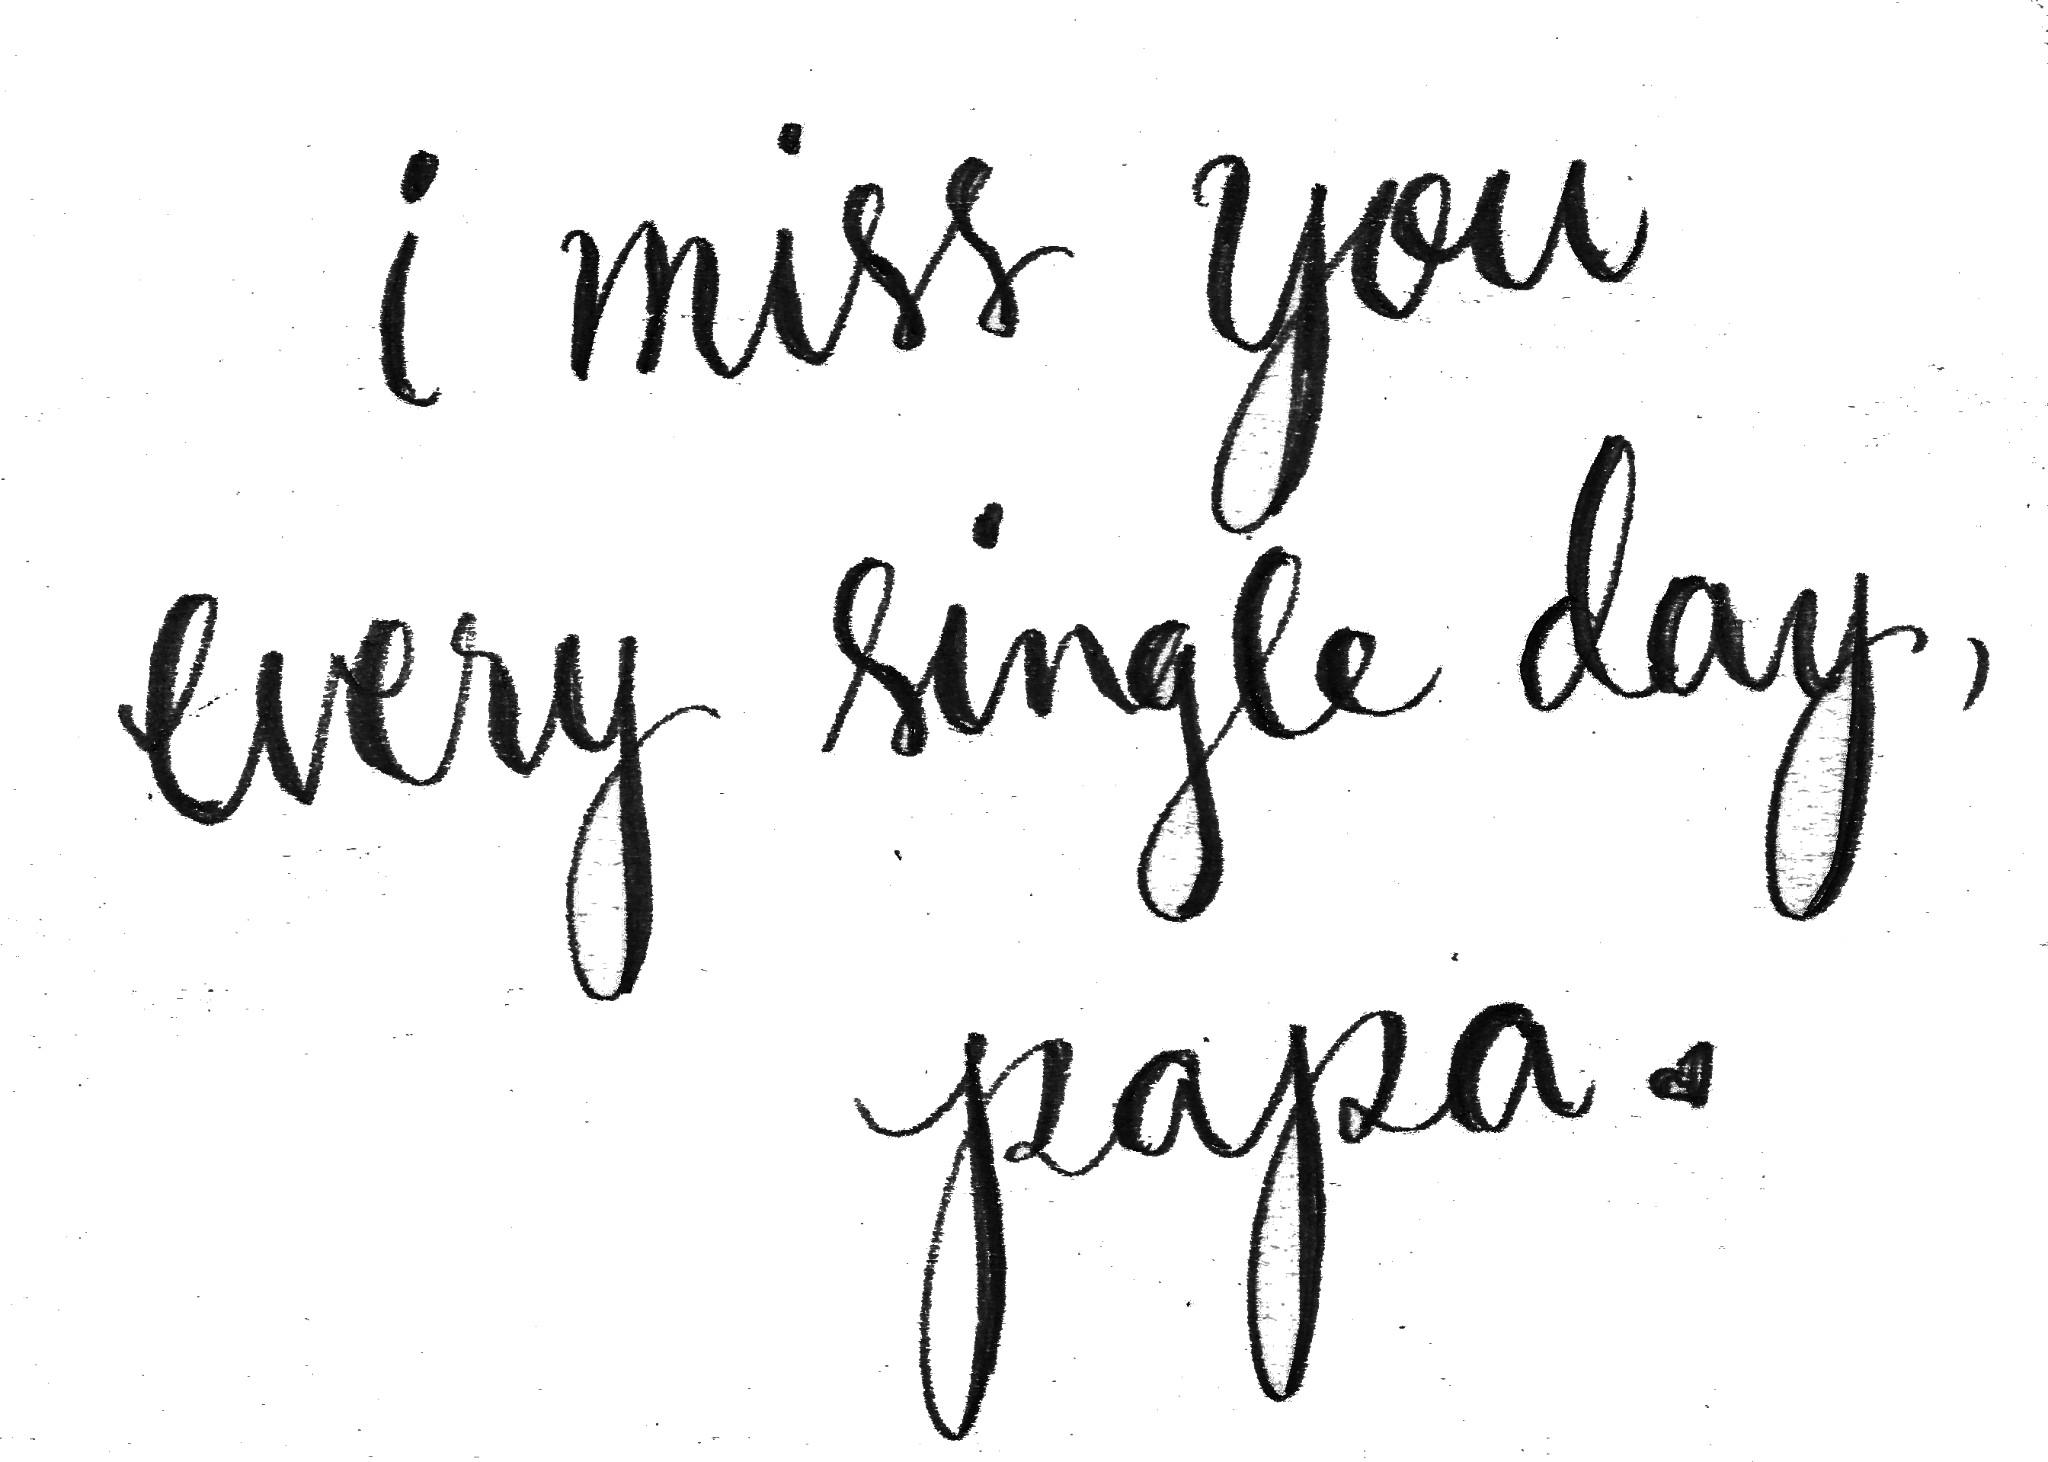 i miss you
every single day,
papa.